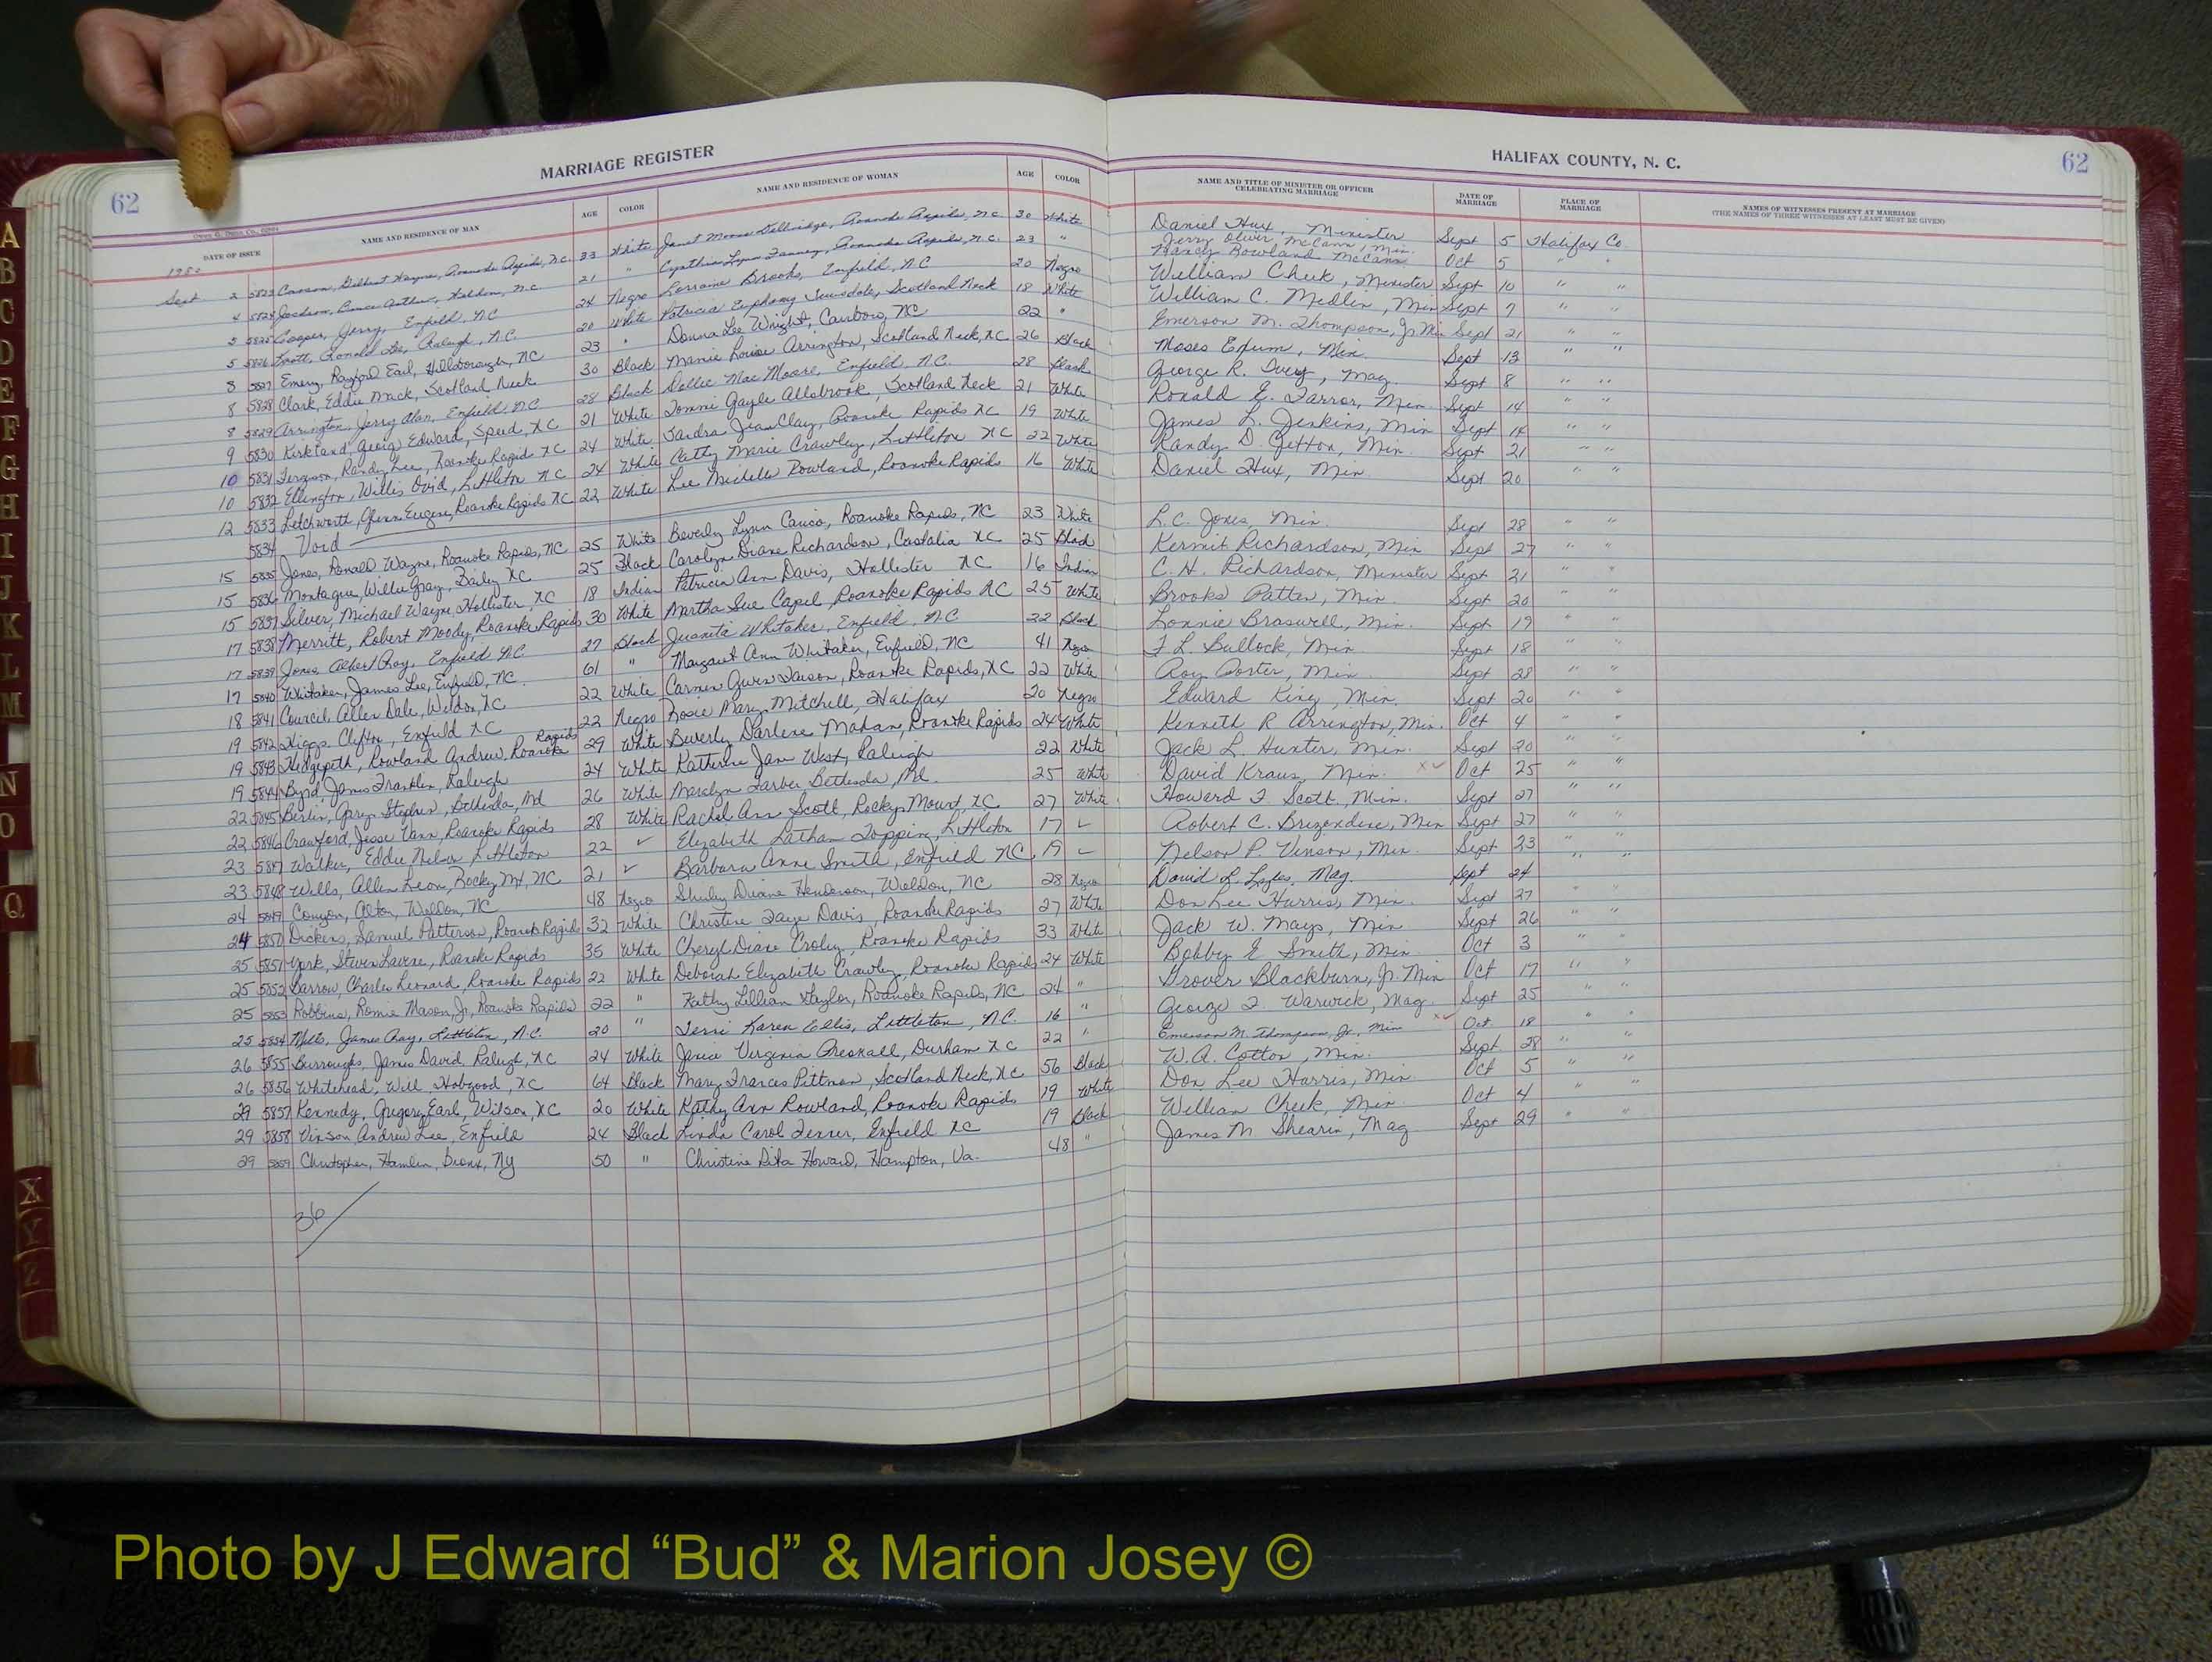 62
MARRIAGE REGISTER
HALIFAX COUNTY, N. C.
62
DATE OF ISSUE NAME AND RESIDENCE OF MAN AGE COLOR NAME AND RESIDENCE OF WOMAN AGE COLOR NAME AND TITLE OF MINISTER OR OFFICER CELEBRATING MARRIAGE DATE OF MARRIAGE PLACE OF MARRIAGE NAMES OF WITNESSES PRESENT AT MARRIAGE (THE NAMES OF THREE WITNESSES AT LEAST MUST BE GIVEN)
1980
Sept 2 5823 Wayne, Roanoke Rapids, NC 33 White Janet Moore Dellbridge, Roanoke Rapids, NC 30 White Daniel Hux, Minister Sept 5 Halifax Co.
4 5824 Jackson, Arthur, Weldon, NC 21 " Cynthia Lynn Roanoke Rapids, N.C. 23 " Jerry Oliver McCann, Min Randy Rowland McCann Oct 5 " "
5 5825 Cooper, Jerry, Enfield, NC 24 Negro Lorraine Brooks, Enfield, N.C 20 Negro William Cheek, Minister Sept 10 " "
5 5826 Ronald Lee, Raleigh, N.C. 20 White Patricia Euphony Scotland Neck 18 White William C. Medlin, Min Sept 7 " "
8 5827 Emery, Rayford Earl, Hillsborough, NC 23 " Donna Lee Wright, Carrboro, NC 22 " Emerson M. Thompson, Jr. Min Sept 21 " "
8 5828 Clark, Eddie Mack, Scotland Neck 30 Black Mamie Louise Arrington, Scotland Neck, NC 26 Black Moses Min. Sept 13 " "
8 5829 Arrington, Jerry Alan, Enfield, NC 28 Black Dollie Mae Moore, Enfield, N.C. 28 Black George R. Ivey, Mag. Sept 8 " "
9 5830 Kirkland, Edward, Speed, NC 21 White Tommi Gayle Allsbrook, Scotland Neck 21 White Ronald E. Farror, Min. Sept 14 " "
10 5831 Ferguson, Randy Lee, Roanoke Rapids NC 24 White Sandra Jean Clay, Roanoke Rapids NC 19 White James L. Jenkins, Min Sept 14 " "
10 5832 Ellington, Willis Ovid, Littleton NC 24 White Cathy Marie Crawley, Littleton NC 22 White Randy D. Min. Sept 21 " "
12 5833 Letchworth, Glenn Eugene, Roanoke Rapids NC 22 White Lee Michelle Rowland, Roanoke Rapids 16 White Daniel Hux, Min. Sept 20 " "
5834 Void
15 5835 Jones, Ronald Wayne, Roanoke Rapids, NC 25 White Beverly Lynn Roanoke Rapids, NC 23 White L.C. Jones, Min. Sept 28 " "
15 5836 Montague, Willie Gray, Bailey NC 25 Black Carolyn Diane Richardson, Castalia NC 25 Black Kermit Richardson, Min Sept 27 " "
15 5837 Silver, Michael Wayne Hollister, NC 18 Indian Patricia Ann Davis, Hollister NC 16 Indian C.H. Richardson, Minister Sept 21 " "
17 5838 Merritt, Robert Moody, Roanoke Rapids 30 White Martha Sue Capel, Roanoke Rapids NC 25 White Brooks Patten, Min. Sept 20 " "
17 5839 Jones, Albert Ray, Enfield NC 27 Black Juanita Whitaker, Enfield, NC 22 Black Lonnie Braswell, Min. Sept 19 " "
17 5840 Whitaker, James Lee, Enfield, NC. 61 " Margaret Ann Whitaker, Enfield, NC 41 Negro F.L. Bullock, Min Sept 18 " "
18 5841 Council, Allen Dale, Weldon, NC 22 White Carmen Gwen Roanoke Rapids, NC 22 White Roy Porter, Min Sept 28 " "
19 5842 Higgs, Clifton, Enfield NC 22 Negro Rosie Mary Mitchell, Halifax 20 Negro Edward King, Min. Sept 20 " "
19 5843 Hedgepeth, Rowland Andrew, Roanoke Rapids 29 White Beverly Darlene Mahan, Roanoke Rapids 24 White Kenneth R Arrington, Min. Oct 4 " "
19 5844 Byrd, James Franklin, Raleigh 24 White Katherine Jane West, Raleigh 22 White Jack L. Hunter, Min. Sept 20 " "
22 5845 Berlin, Gary Stephen, Bethesda, Md 26 White Marilyn Farber Bethesda, Md. 25 White David Kraus, Min. Oct 25 " "
22 5846 Crawford, Jesse Vann, Roanoke Rapids 28 White Rachel Ann Scott, Rocky Mount, NC 27 White Howard F. Scott, Min. Sept 27 " "
23 5847 Walker, Eddie Nelson Littleton 22 Elizabeth Latham Topping, Littleton 17 Robert C. Brizendine, Min Sept 27 " "
23 5848 Wells, Allen Leon, Rocky Mt, NC 21 Barbara Anne Smith, Enfield NC, 19 Nelson P. Vinson, Min. Sept 23 " "
24 5849 Conyon, Alton, Weldon, NC 48 Negro Shirley Diane Henderson, Weldon, NC 28 Negro David L. Lyles, Mag. Sept 24
24 5850 Dickens, Samuel Patterson, Roanoke Rapids 32 White Christine Faye Davis, Roanoke Rapids 27 White Don Lee Harris, Min. Sept 27 " "
25 5851 York, Steven Lavene, Roanoke Rapids 35 White Cheryl Diane Croley, Roanoke Rapids 33 White Jack W. Mays, Min Sept 26 " "
25 5852 Darrow, Charles Leonard, Roanoke Rapids 22 White Deborah Elizabeth Crawley, Roanoke Rapids 24 White Bobby E Smith, Min. Oct 3 " "
25 5853 Robbins, Romie Mason, Jr, Roanoke Rapids 22 " Kathy Lillian Staylor, Roanoke Rapids, NC 24 " Grover Blackburn, Jr. Min Oct 17 " "
25 5854 Mills, James Ray, Littleton, N.C. 20 " Terri Karen Ellis, Littleton, N.C. 16 " George F. Warwick, Mag. Sept 25 " "
26 5855 Burroughs, James David Raleigh, NC 24 White Janice Virginia Presnall, Durham NC 22 " Emerson M. Thompson, Jr., Min Oct. 18 " "
26 5856 Whitehead, Will, Hobgood, NC 64 Black Mary Frances Pittman, Scotland Neck, NC 56 Black W.A. Cotton, Min. Sept. 28 " "
29 5857 Kennedy, Gregory Earl, Wilson, NC 20 White Kathy Ann Rowland, Roanoke Rapids 19 White Don Lee Harris, Min Oct 5 " "
29 5858 Vinson Andrew Lee, Enfield 24 Black Linda Carol Enfield NC 19 Black William Cheek, Min. Oct 4 " "
29 5859 Christopher, Hamlin, Bronx, NY 50 " Christine Rita Howard, Hampton, Va. 48 " James M Shearin, Mag Sept 29 " "
36
A
B
C
D
E
F
G
H
I
J
K
L
M
N
O
Q
X
Y
Z
Photo by J Edward “Bud” & Marion Josey ©